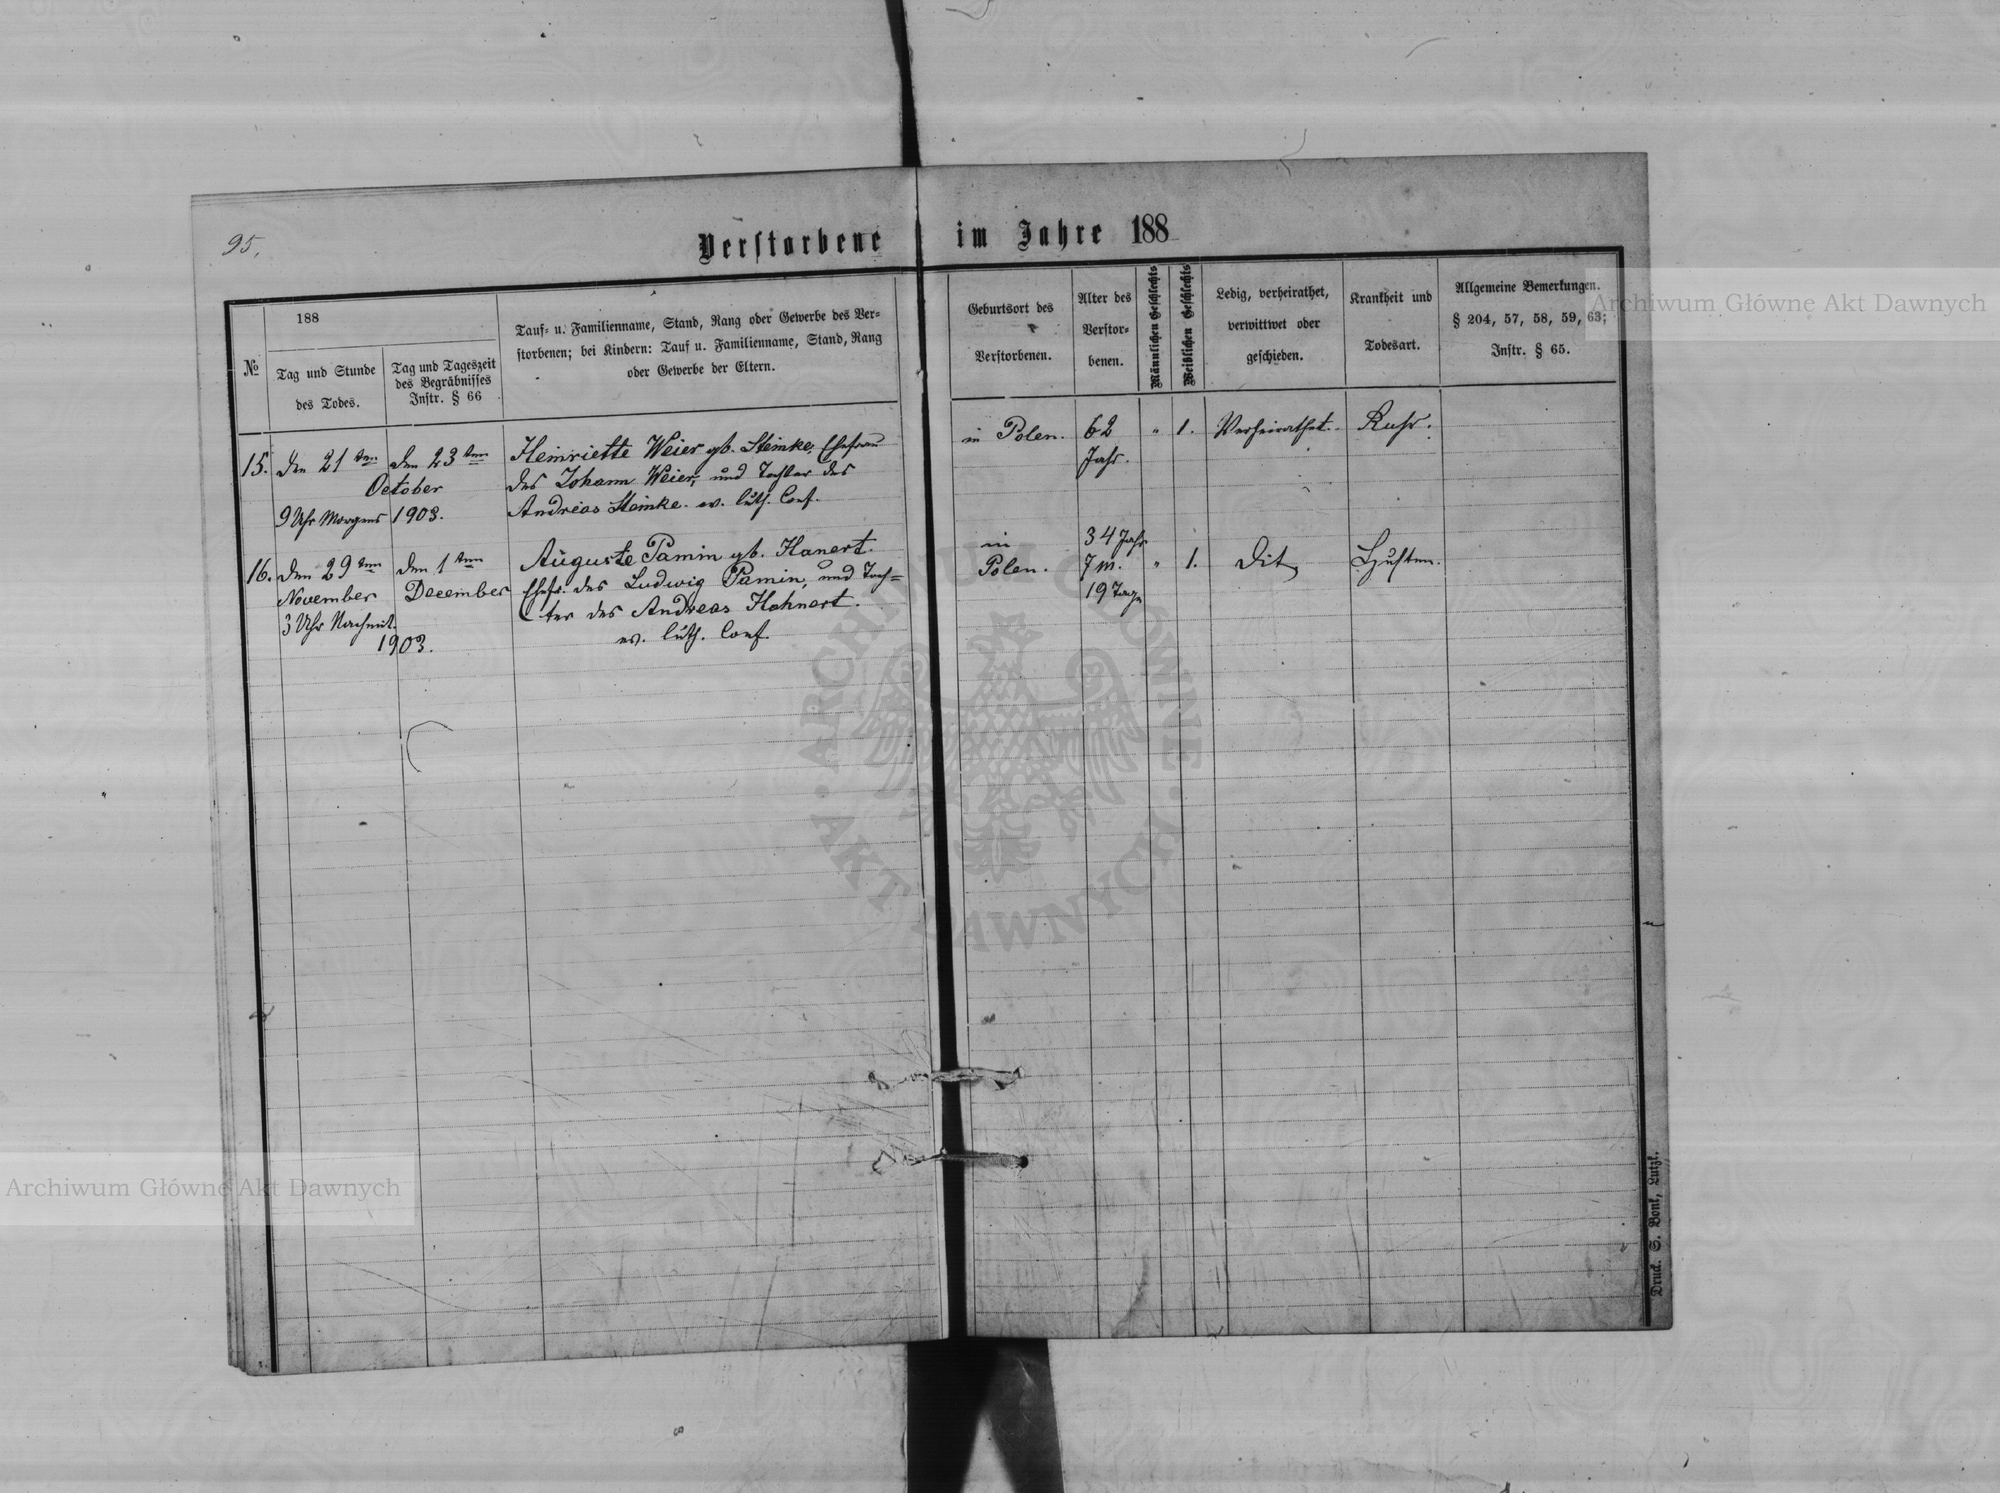 95.
Verstorbene im Jahre 188
№
188
Tag und Stunde
des Todes.
Tag und Tageszeit
des Begräbnisses
Instr. § 66
Tauf- u. Familienname, Stand, Rang oder Gewerbe des Ver-
storbenen; bei Kindern: Tauf u. Familienname, Stand, Rang
oder Gewerbe der Eltern.
Geburtsort des
Verstorbenen.
Alter des
Verstor-
benen.
Männlichen Geschlechts
Weiblichen Geschlechts
Ledig, verheirathet,
verwittwet oder
geschieden.
Krankheit und
Todesart.
Allgemeine Bemerkungen.
§ 204, 57, 58, 59, 63;
Instr. § 65.
15. den 21ten den 23ten
October
9 Uhr Morgens 1903.
Henriette Weier gb. Steinke, Ehefrau
des Johann Weier, und Tochter des
Andreas Steinke. ev. luth. Conf.
in Polen.
62
Jahr.
" 1.
Verheirathet.
Ruhr.
16. den 29ten den 1ten
November December
3 Uhr Nachmit.
1903.
Auguste Pamin gb. Hanert.
Ehefr. des Ludwig Pamin, und Toch=
ter des Andreas Hahnert.
ev. luth. Conf.
in
Polen.
34 Jahr
7 M.
19 Tage
" 1.
Dit
Husten.
Druck. S. Bonk, Lutzk.
Archiwum Główne Akt Dawnych
Archiwum Główne Akt Dawnych
ARCHIWUM GŁÓWNE
AKT DAWNYCH